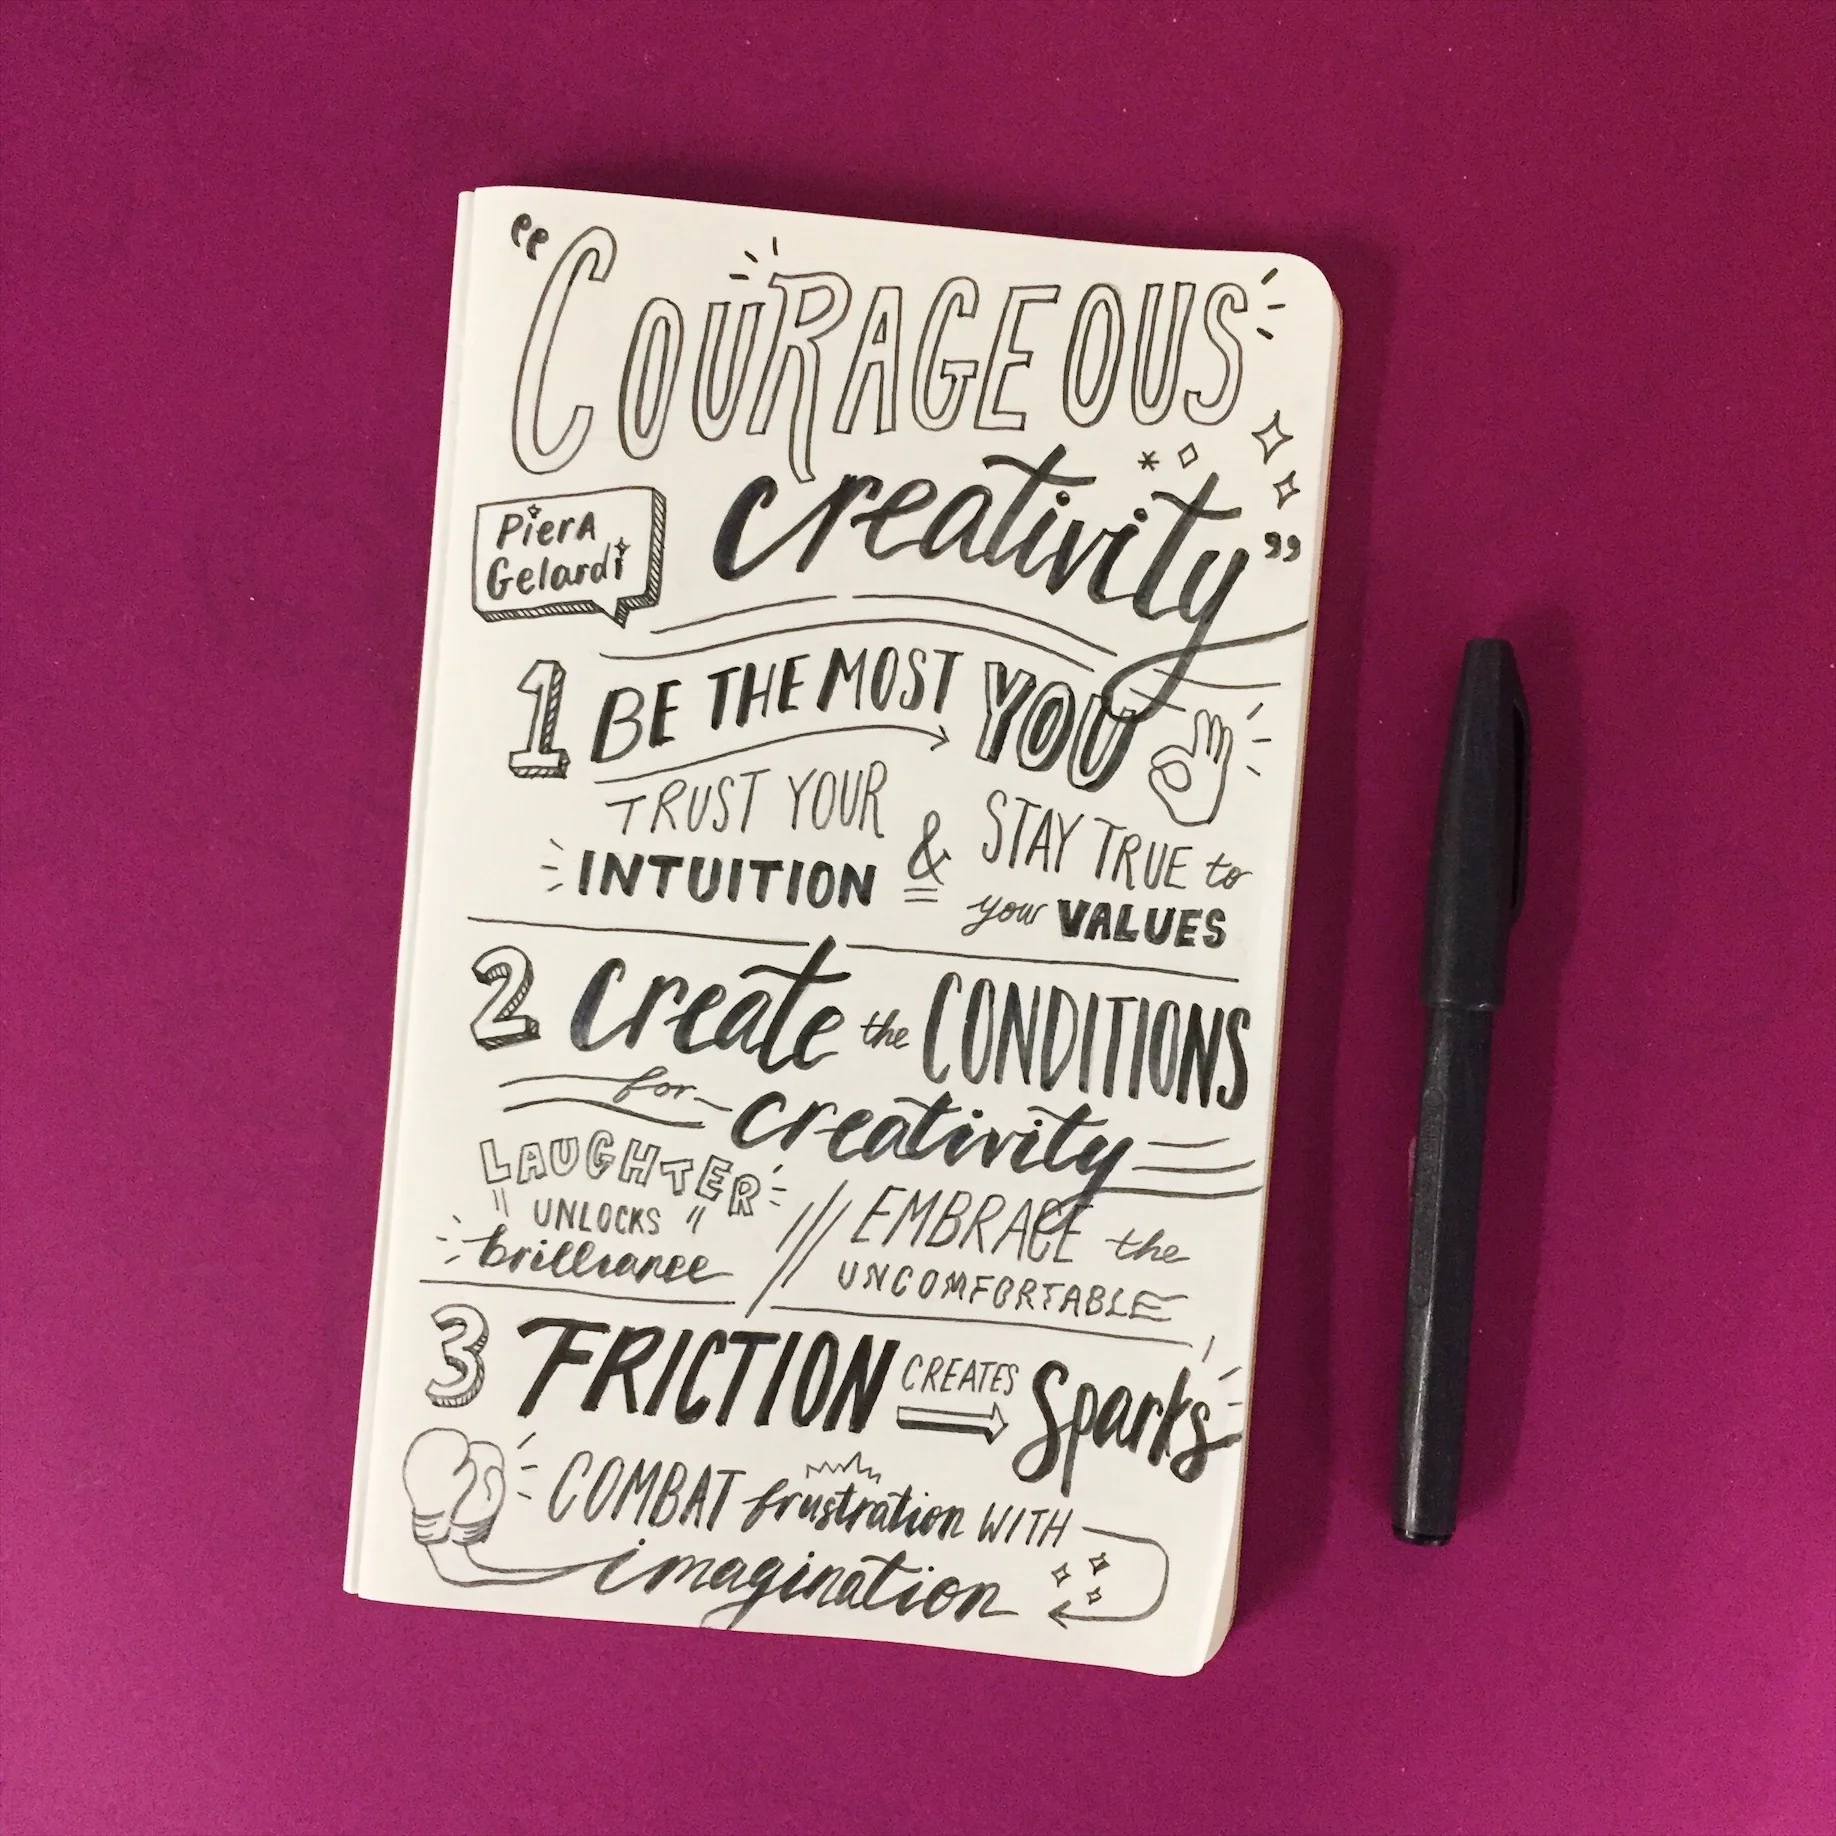 “COURAGEOUS
creativity”
PierA
Gelardi
1 BE THE MOST YOU
TRUST YOUR
INTUITION
&
STAY TRUE to
your VALUES
2 Create the CONDITIONS
for creativity
LAUGHTER
UNLOCKS
brilliance
EMBRACE the
UNCOMFORTABLE
3 FRICTION CREATES Sparks
COMBAT frustration WITH
imagination